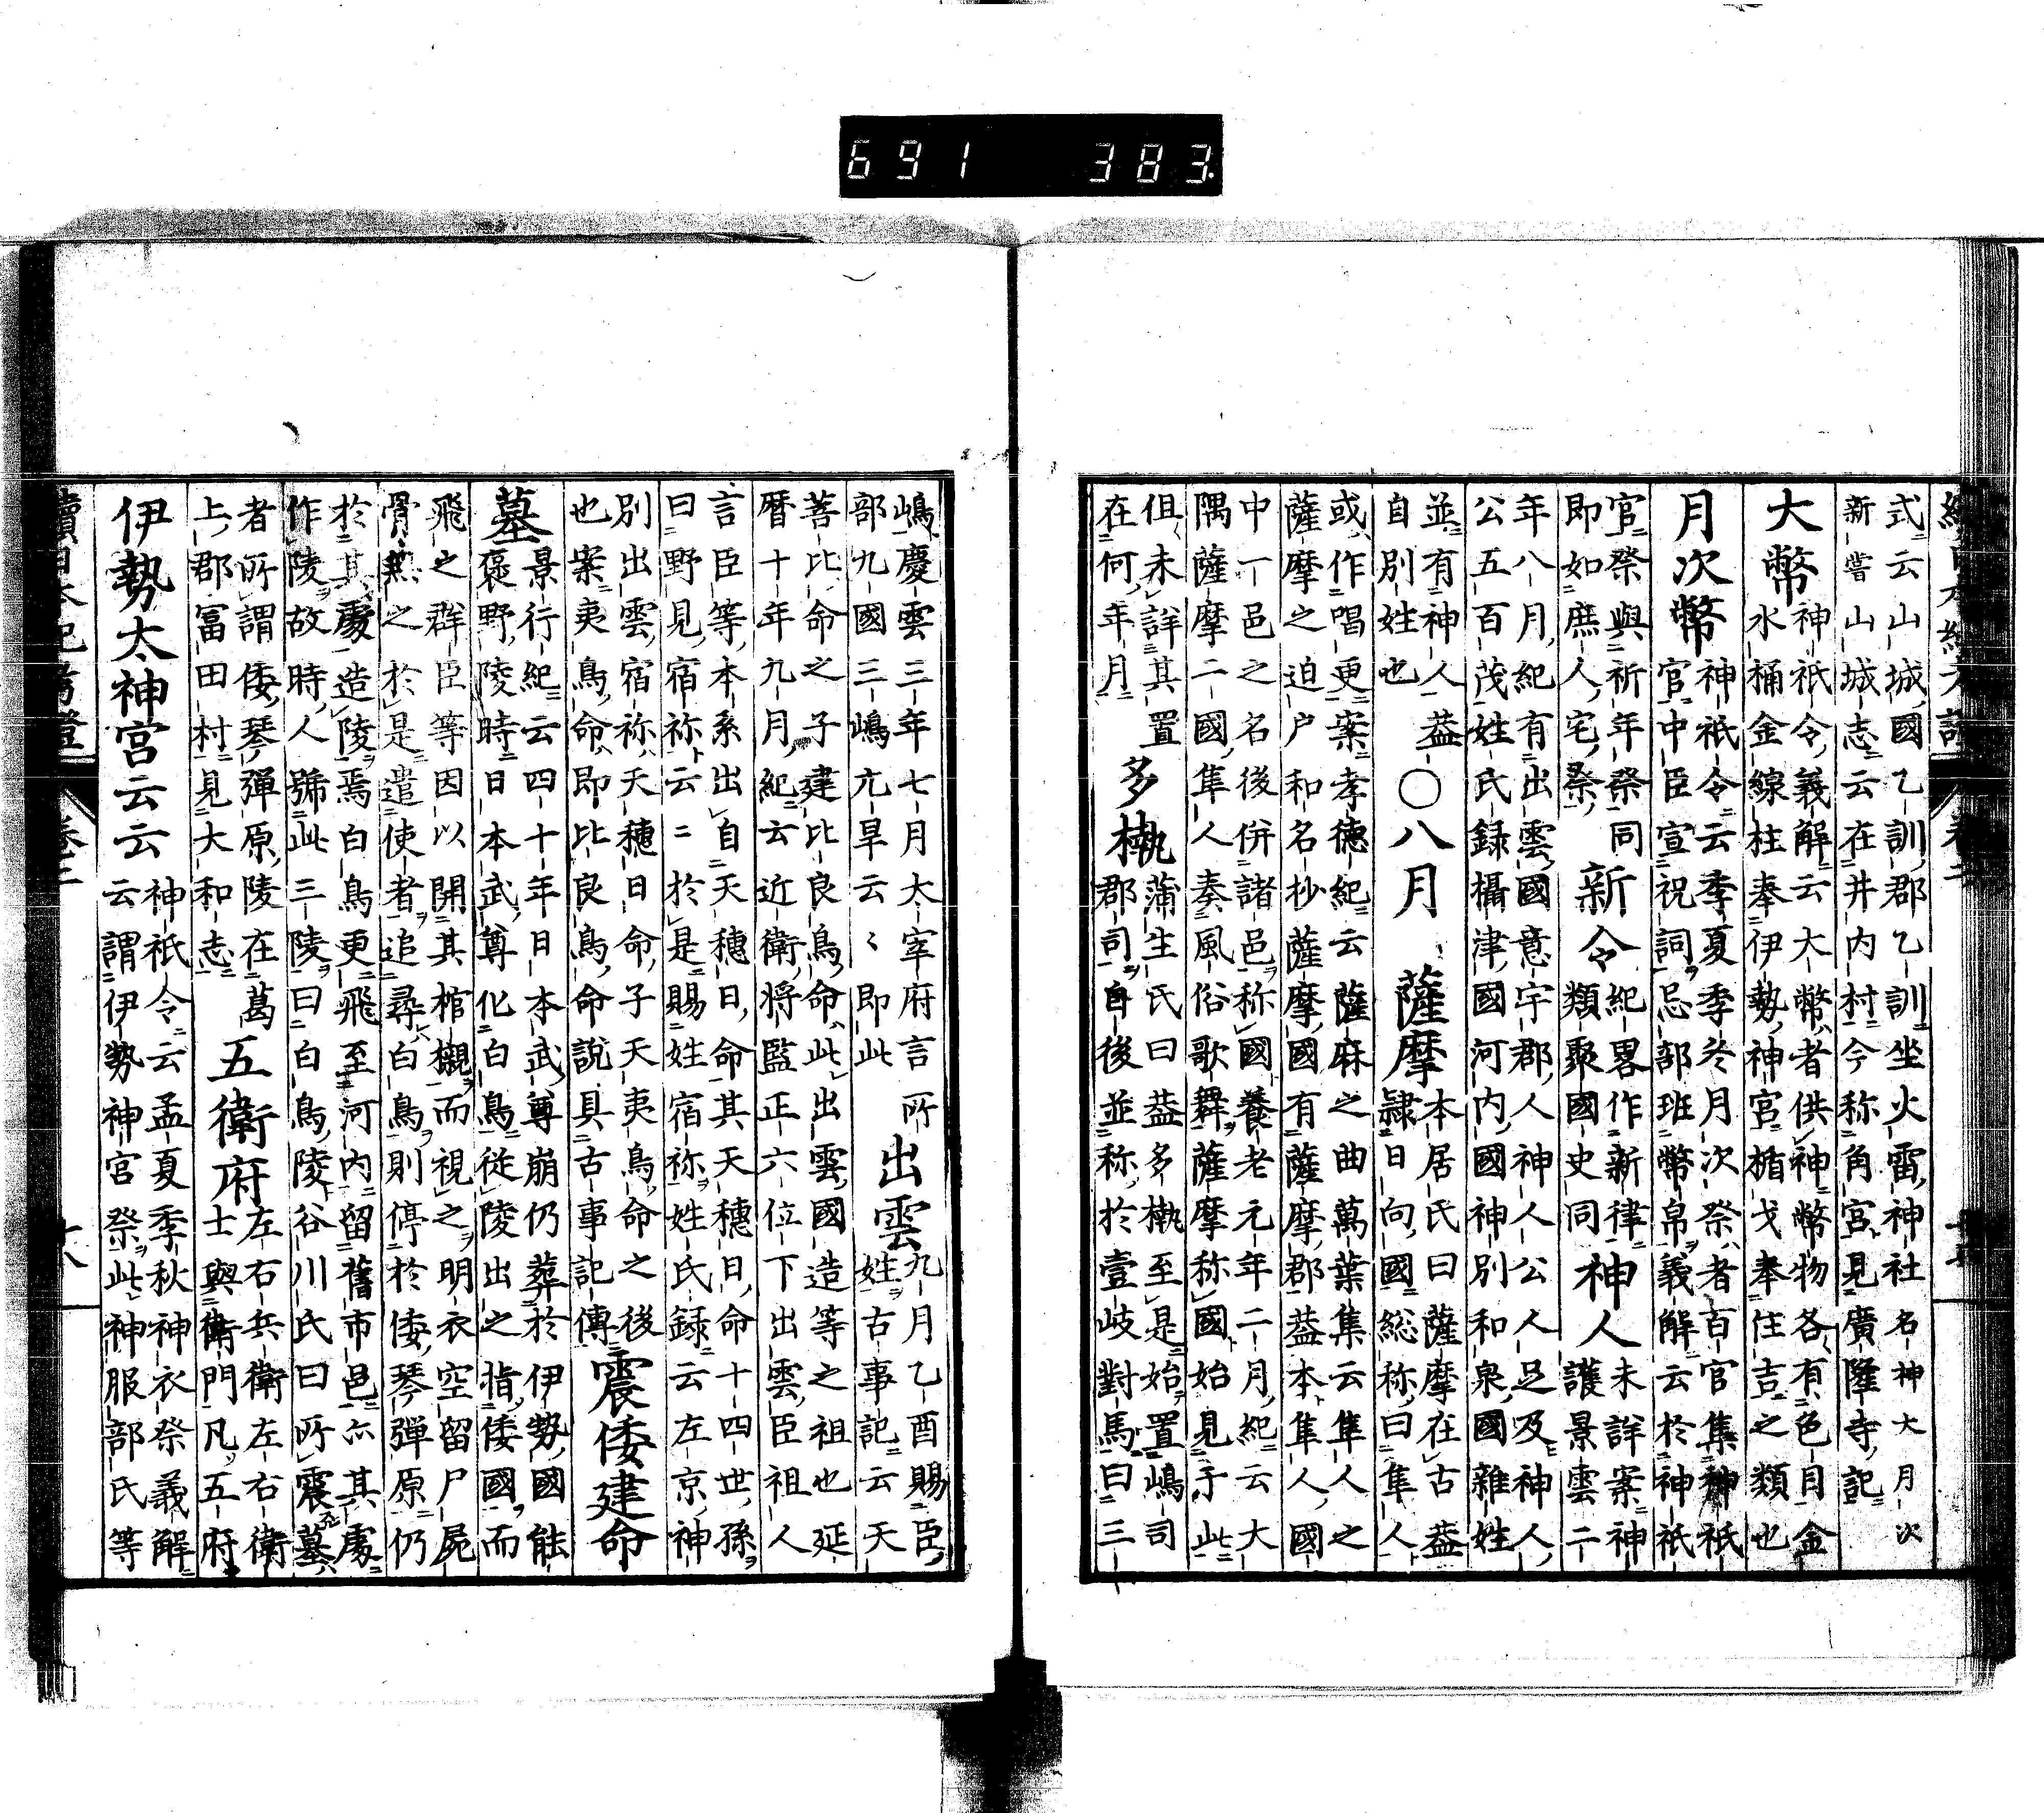 691 383
式云山城國乙訓郡乙訓坐火雷神社名神大月次
新嘗山城志云在井内村今称角宮見廣隆寺記
大幣
神祇令義解云大幣者供神幣物各有色目金
水桶金線柱奉伊勢神宮楯戈奉住吉之類也
月次幣
神祇令云季夏季冬月次祭者百官集神祇
官中臣宣祝詞忌部班幣帛義解云於神祇
官祭與祈年祭同
即如庶人宅祭
新令
紀畧作新律
類聚國史同
神人
未詳案神
護景雲二
年八月紀有出雲國意宇郡人神人公人足及神人
公五百茂姓氏録攝津國河内國神別和泉國雜姓
並有神人葢
自別姓也
〇八月
薩摩
本居氏曰薩摩在古葢
隷日向國総称曰隼人
或作唱更案孝德紀云薩麻之曲萬葉集云隼人之
薩摩之迫戸和名抄薩摩國有薩摩郡葢本隼人國
中一邑之名後併諸邑称國養老元年二月紀云大
隅薩摩二國隼人奏風俗歌舞薩摩称國始見于此
但未詳其置
在何年月
多褹
蒲生氏曰葢多褹至是始置嶋司
郡司自後並称於壹岐對馬曰三
嶋慶雲三年七月太宰府言所
部九國三嶋亢旱云〻即此
出雲
九月乙酉賜臣
姓古事記云天
菩比命之子建比良鳥命此出雲國造等之祖也延
暦十年九月紀云近衛将監正六位下出雲臣祖人
言臣等本系出自天穂日命其天穂日命十四世孫
曰野見宿祢云二於是賜姓宿祢姓氏録云左京神
別出雲宿祢天穂日命子天夷鳥命之後
也案夷鳥命即比良鳥命說具古事記傳
震倭建命
墓
景行紀云四十年日本武尊崩仍葬於伊勢國能
褒野陵時日本武尊化白鳥從陵出之指倭國而
飛之群臣等因以開其棺櫬而視之明衣空留尸屍
骨無之於是遣使者追尋白鳥則停於倭琴彈原仍
於其處造陵焉白鳥更飛至河内留舊市邑亦其處
作陵故時人號此三陵曰白鳥陵谷川氏曰所震墓
者所謂倭琴彈原陵在葛
上郡冨田村見大和志
五衛府
左右兵衛左右衛
士與衛門凡五府
伊勢太神宮云云
神祇令云孟夏季秋神衣祭義解
云謂伊勢神宮祭此神服部氏等